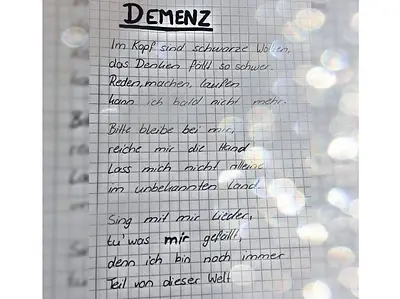 DEMENZ
Im Kopf sind schwarze Wolken,
das Denken fällt so schwer.
Reden, machen, laufen
kann ich bald nicht mehr.
Bitte bleibe bei mir,
reiche mir die Hand
Lass mich nicht alleine
im unbekannten Land.
Sing mit mir Lieder,
tu' was mir gefällt,
denn ich bin noch immer
Teil von dieser Welt